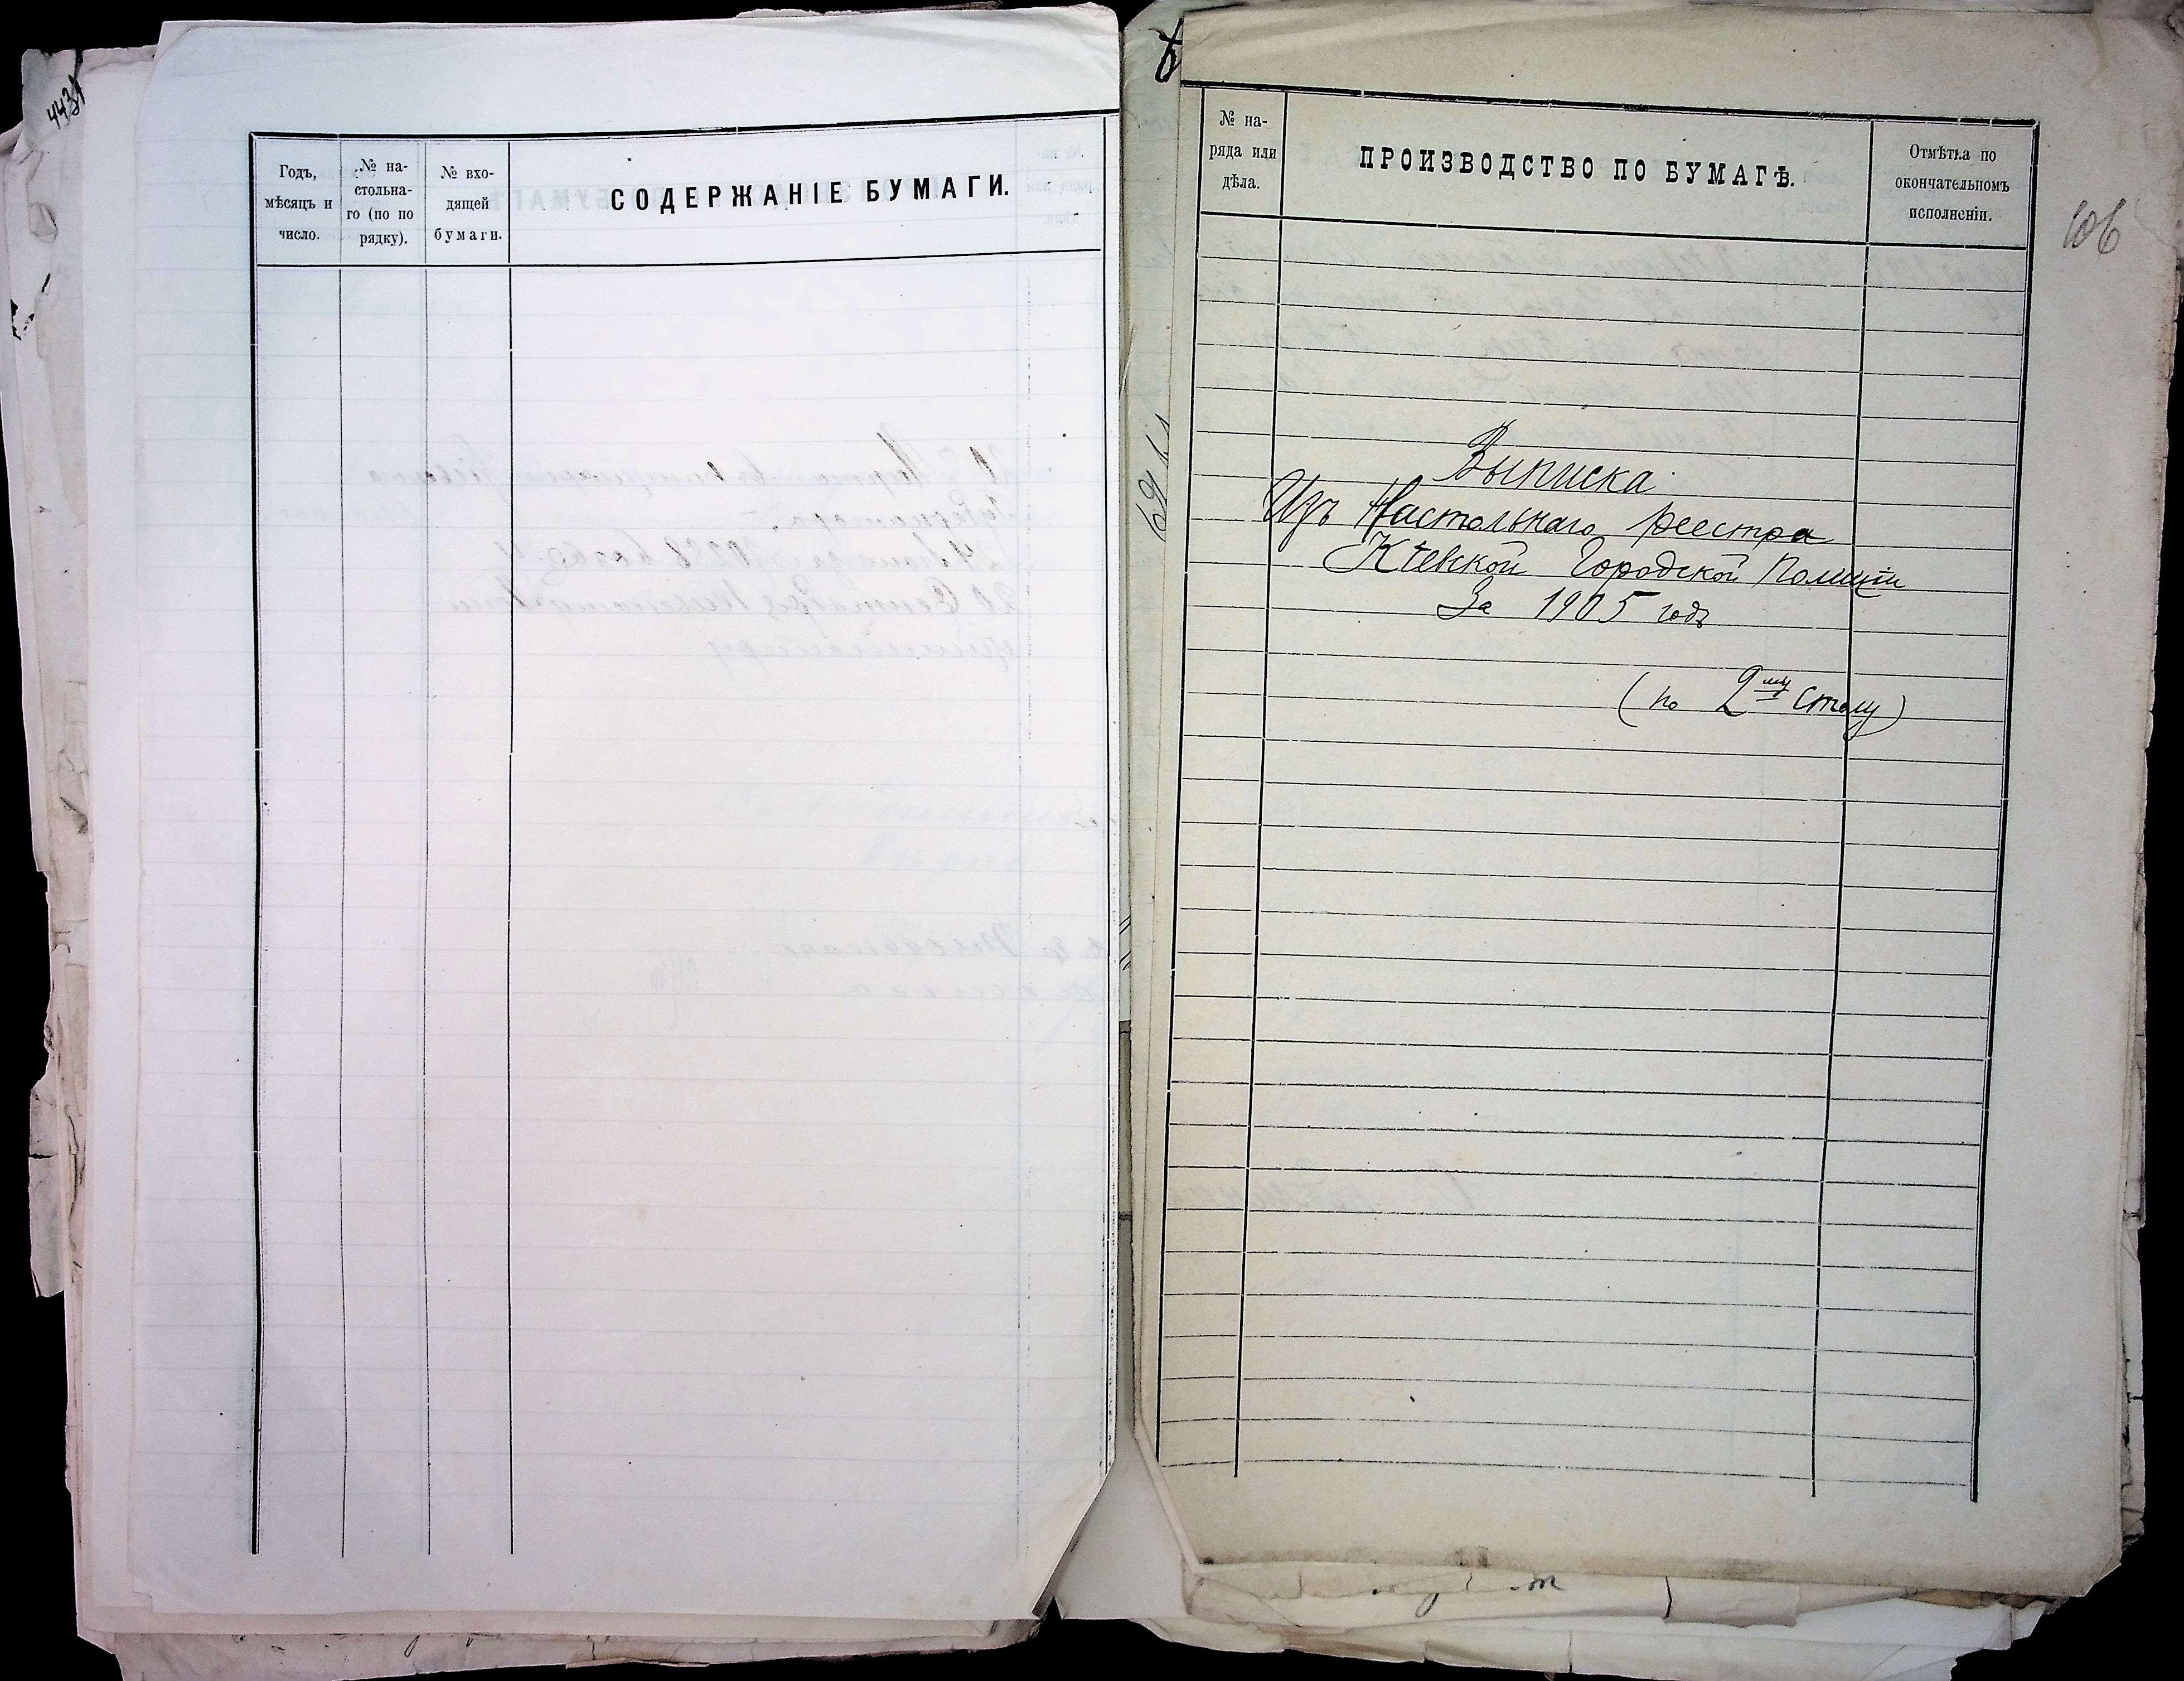 4431
Годъ,
мѣсяцъ и
число.
№ на-
стольна-
го (по по
рядку).
№ вхо-
дящей
бумаги.
СОДЕРЖАНІЕ БУМАГИ.
№ на-
ряда или
дѣла.
ПРОИЗВОДСТВО ПО БУМАГѢ.
Отмѣтка по
окончательномъ
исполненіи.
106
Выписка
Изъ Настольнаго реестра
Кіевской Городской Полиціи
За 1905 годъ
(по 2му столу)